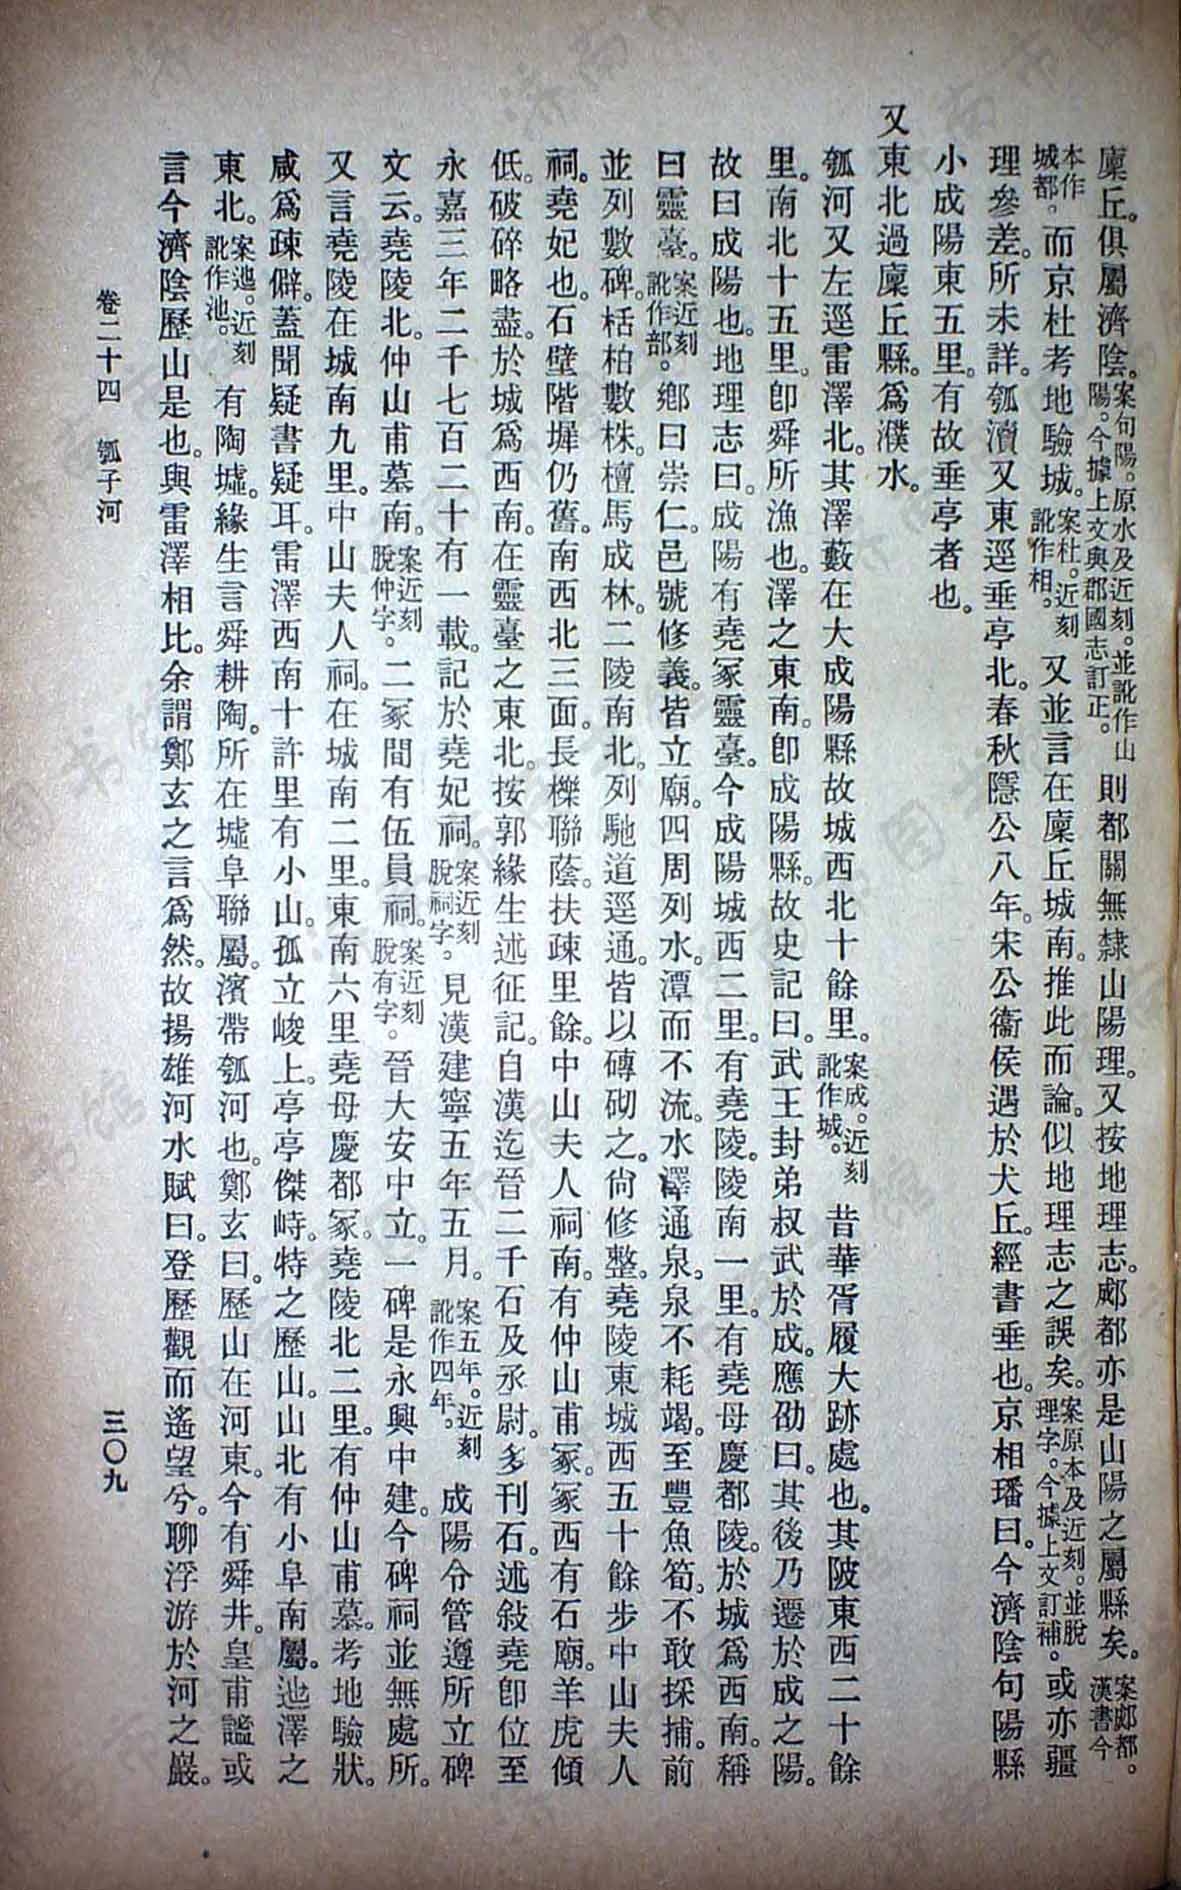 廩丘。俱屬濟陰。案句陽。原水及近刻。並訛作山陽。今據上文與郡國志訂正。則都關無隸山陽理。又按地理志。郕都亦是山陽之屬縣矣。案郕都。漢書今
本作城都。而京杜考地驗城。案杜。近刻訛作相。又並言在廩丘城南。推此而論。似地理志之誤矣。案原本及近刻。並脫理字。今據上文訂補。或亦疆
理參差。所未詳。瓠瀆又東逕垂亭北。春秋隱公八年。宋公衞侯遇於犬丘。經書垂也。京相璠曰。今濟陰句陽縣
小成陽東五里。有故垂亭者也。
又東北過廩丘縣。爲濮水。
瓠河又左逕雷澤北。其澤藪在大成陽縣故城西北十餘里。案成。近刻訛作城。昔華胥履大跡處也。其陂東西二十餘
里。南北十五里。卽舜所漁也。澤之東南。卽成陽縣。故史記曰。武王封弟叔武於成。應劭曰。其後乃遷於成之陽。
故曰成陽也。地理志曰。成陽有堯冢靈臺。今成陽城西二里。有堯陵。陵南一里。有堯母慶都陵。於城爲西南。稱
曰靈臺。案近刻訛作部。鄉曰崇仁。邑號修義。皆立廟。四周列水。潭而不流。水澤通泉。泉不耗竭。至豐魚筍。不敢採捕。前
並列數碑。栝柏數株。檀馬成林。二陵南北。列馳道逕通。皆以磚砌之。尙修整。堯陵東城西五十餘步中山夫人
祠。堯妃也。石壁階墀仍舊。南西北三面。長櫟聯蔭。扶疎里餘。中山夫人祠南。有仲山甫冢。冢西有石廟。羊虎傾
低。破碎略盡。於城爲西南。在靈臺之東北。按郭緣生述征記。自漢迄晉二千石及丞尉。多刊石。述敍堯卽位至
永嘉三年二千七百二十有一載。記於堯妃祠。案近刻脫祠字。見漢建寧五年五月。案五年。近刻訛作四年。成陽令管遵所立碑
文云。堯陵北。仲山甫墓南。案近刻脫仲字。二冢間有伍員祠。案近刻脫有字。晉大安中立。一碑是永興中建。今碑祠並無處所。
又言堯陵在城南九里。中山夫人祠。在城南二里。東南六里堯母慶都冢。堯陵北二里。有仲山甫墓。考地驗狀。
咸爲疎僻。蓋聞疑書疑耳。雷澤西南十許里有小山。孤立峻上。亭亭傑峙。特之歷山。山北有小阜南屬。迆澤之
東北。案迆。近刻訛作池。有陶墟。緣生言舜耕陶。所在墟阜聯屬。濱帶瓠河也。鄭玄曰。歷山在河東。今有舜井。皇甫謐或
言今濟陰歷山是也。與雷澤相比。余謂鄭玄之言爲然。故揚雄河水賦曰。登歷觀而遙望兮。聊浮游於河之巖。
卷二十四 瓠子河
三〇九